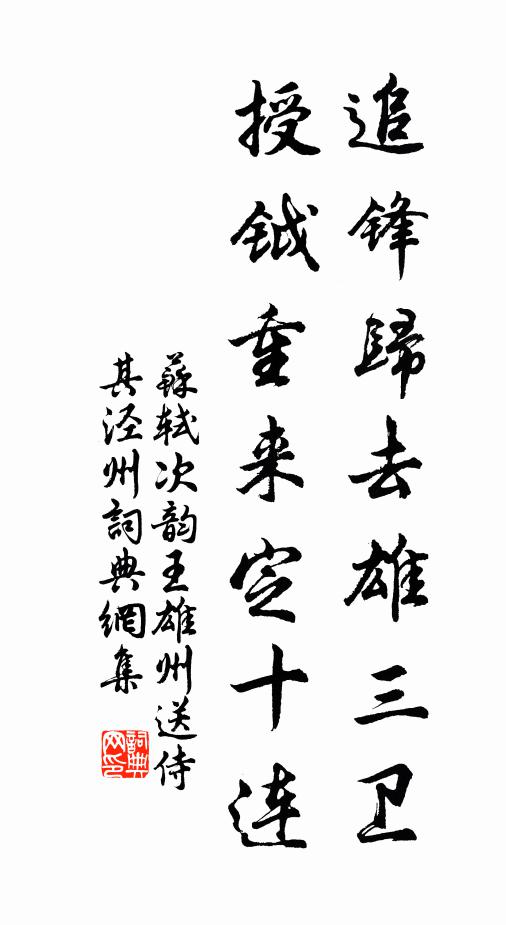 追锋歸去雄三卫
授钺重来定十连
蘇轼次韵王雄州送侍
其泾州詞典網集
詞典
网印